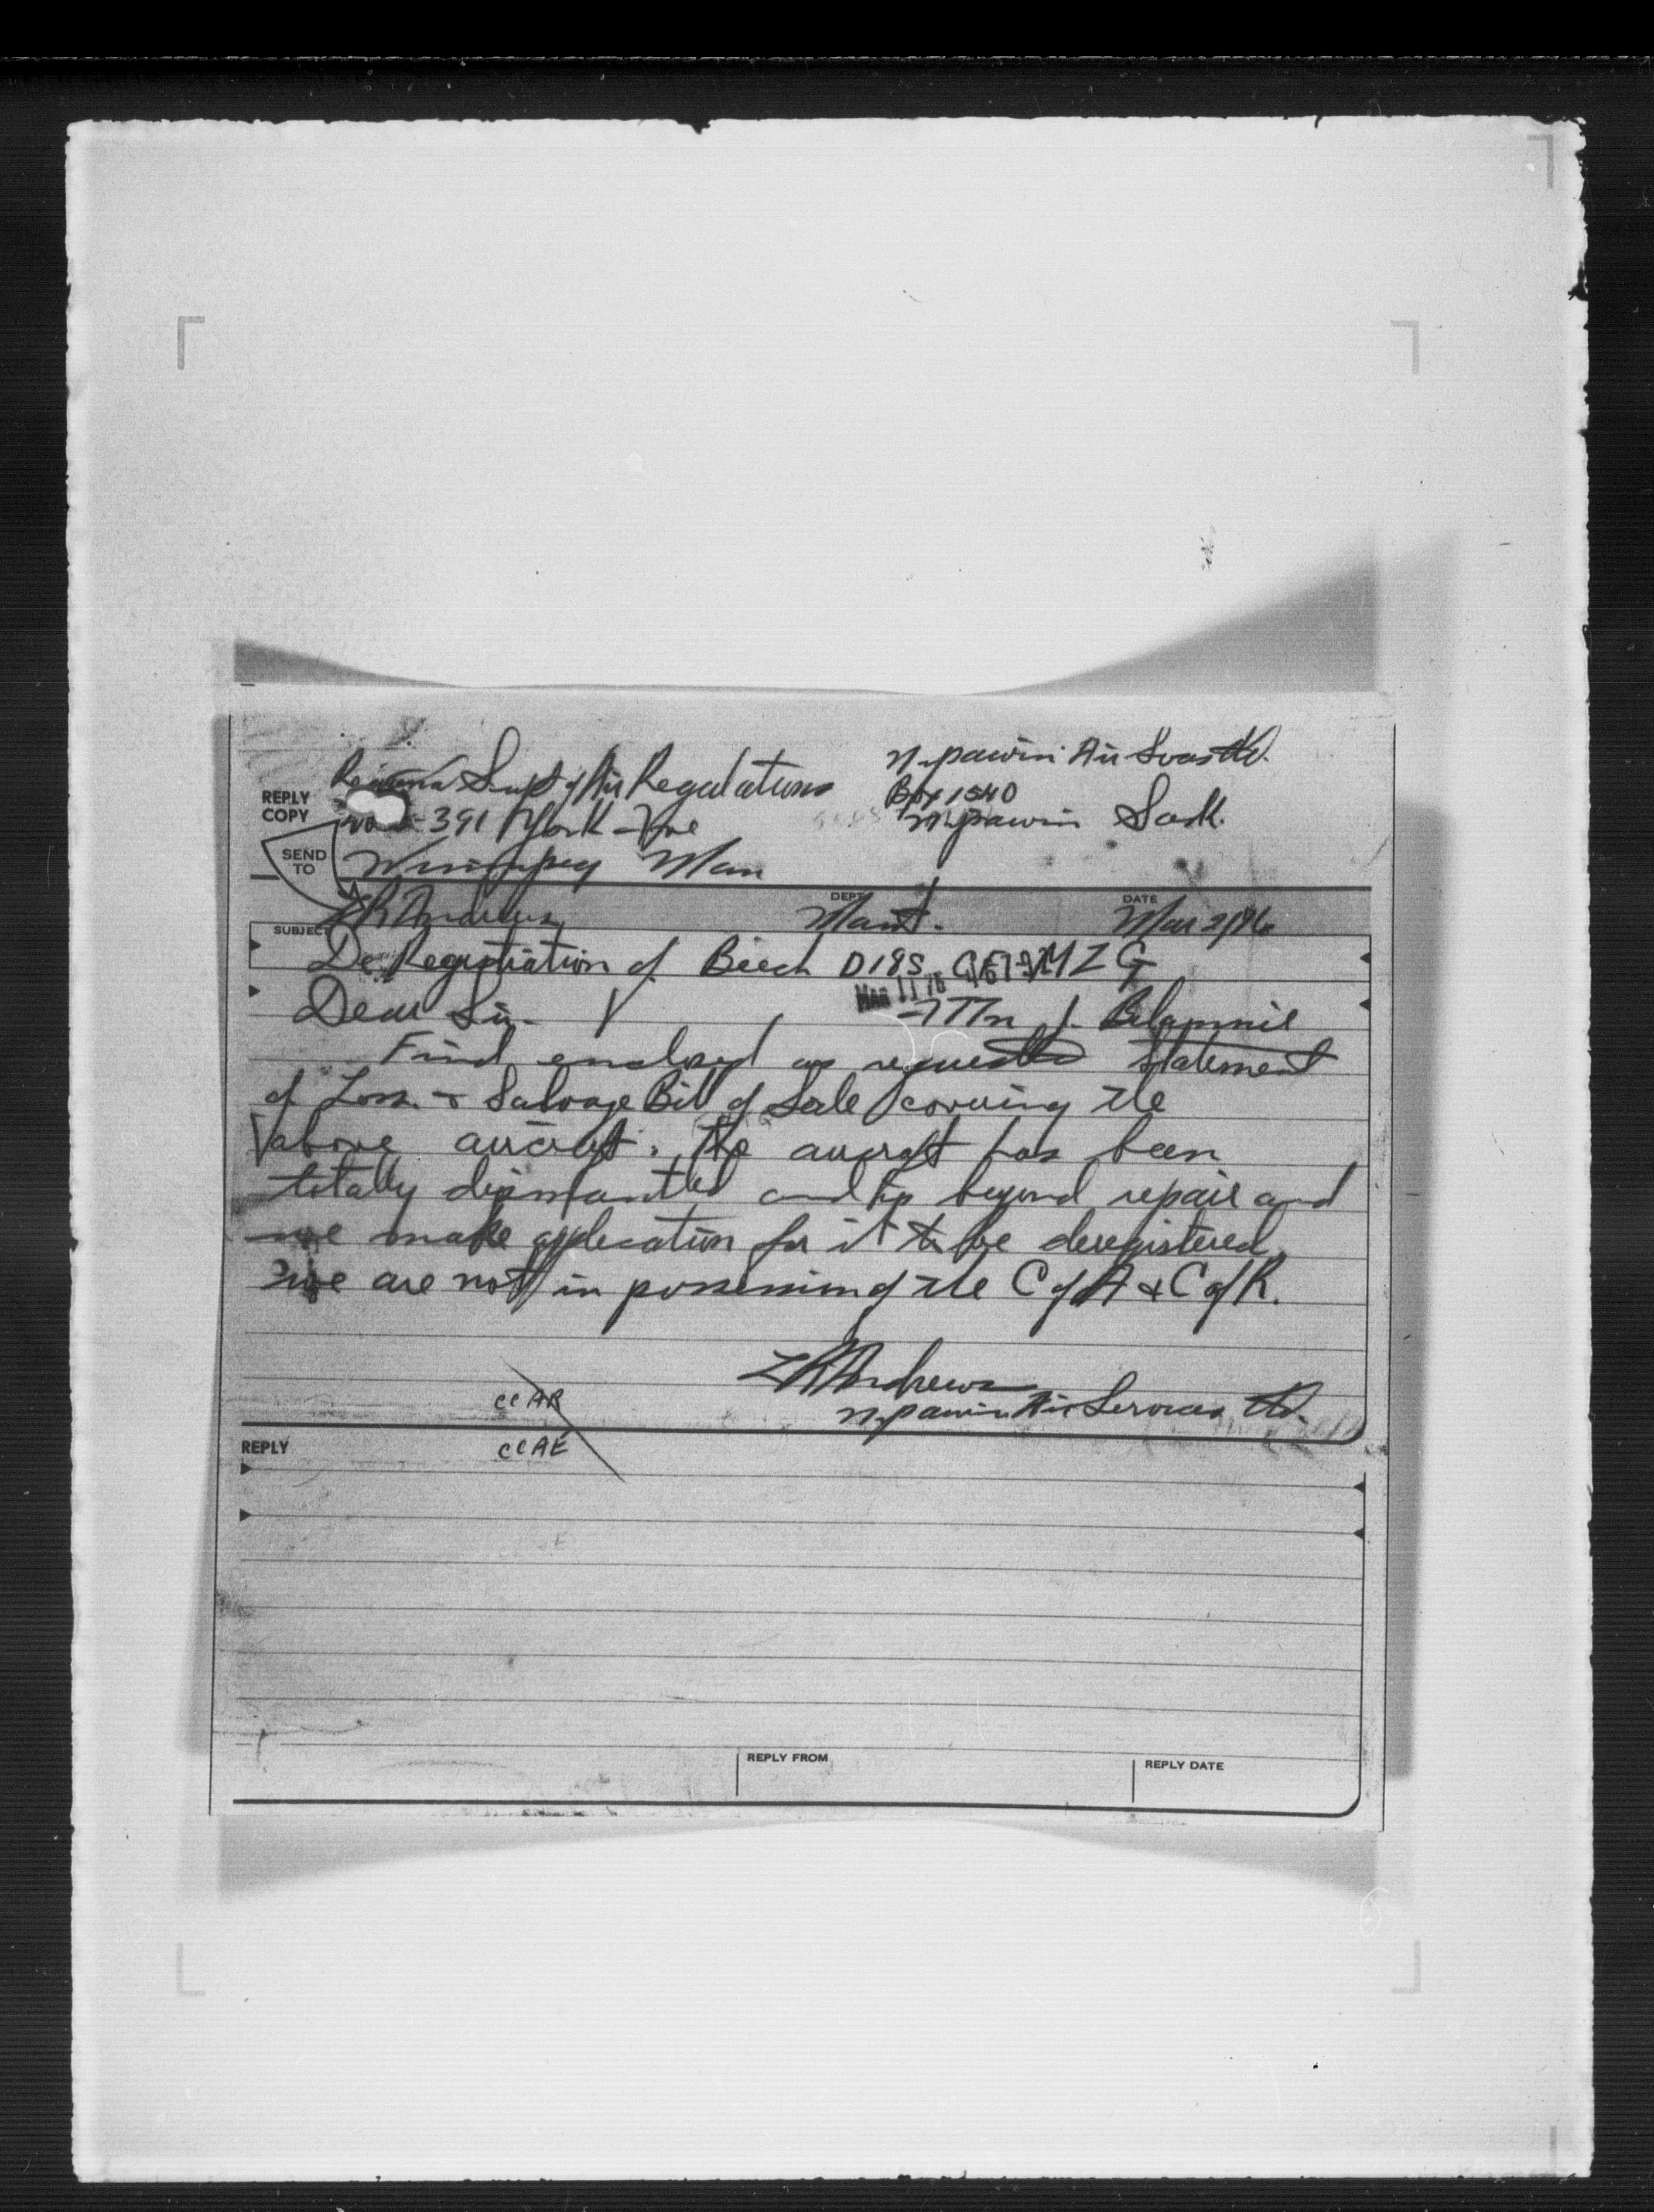 Regional Supt of Air Regulations
Nipawin Air Svces Ltd.
REPLY COPY
Box 1540
391 York Ave
Nipawin Sask.
SEND TO
Winnipeg Man
DEPT
DATE
L R Andrews
Maint.
Mar 2/76
SUBJECT
De Registration of Beech D18S CF-MZG
MAR 11 76
Dear Sir. Attn J.
Find enclosed as requested statement
of Loss & Salvage Bill of Sale covering the
above aircraft. The aircraft has been
totally dismantled and is beyond repair and
we make application for it to be deregistered.
We are not in possession of the C of A & C of R.
L R Andrews
Nipawin Air Services Ltd.
CCAR
REPLY
CCAE
REPLY FROM
REPLY DATE